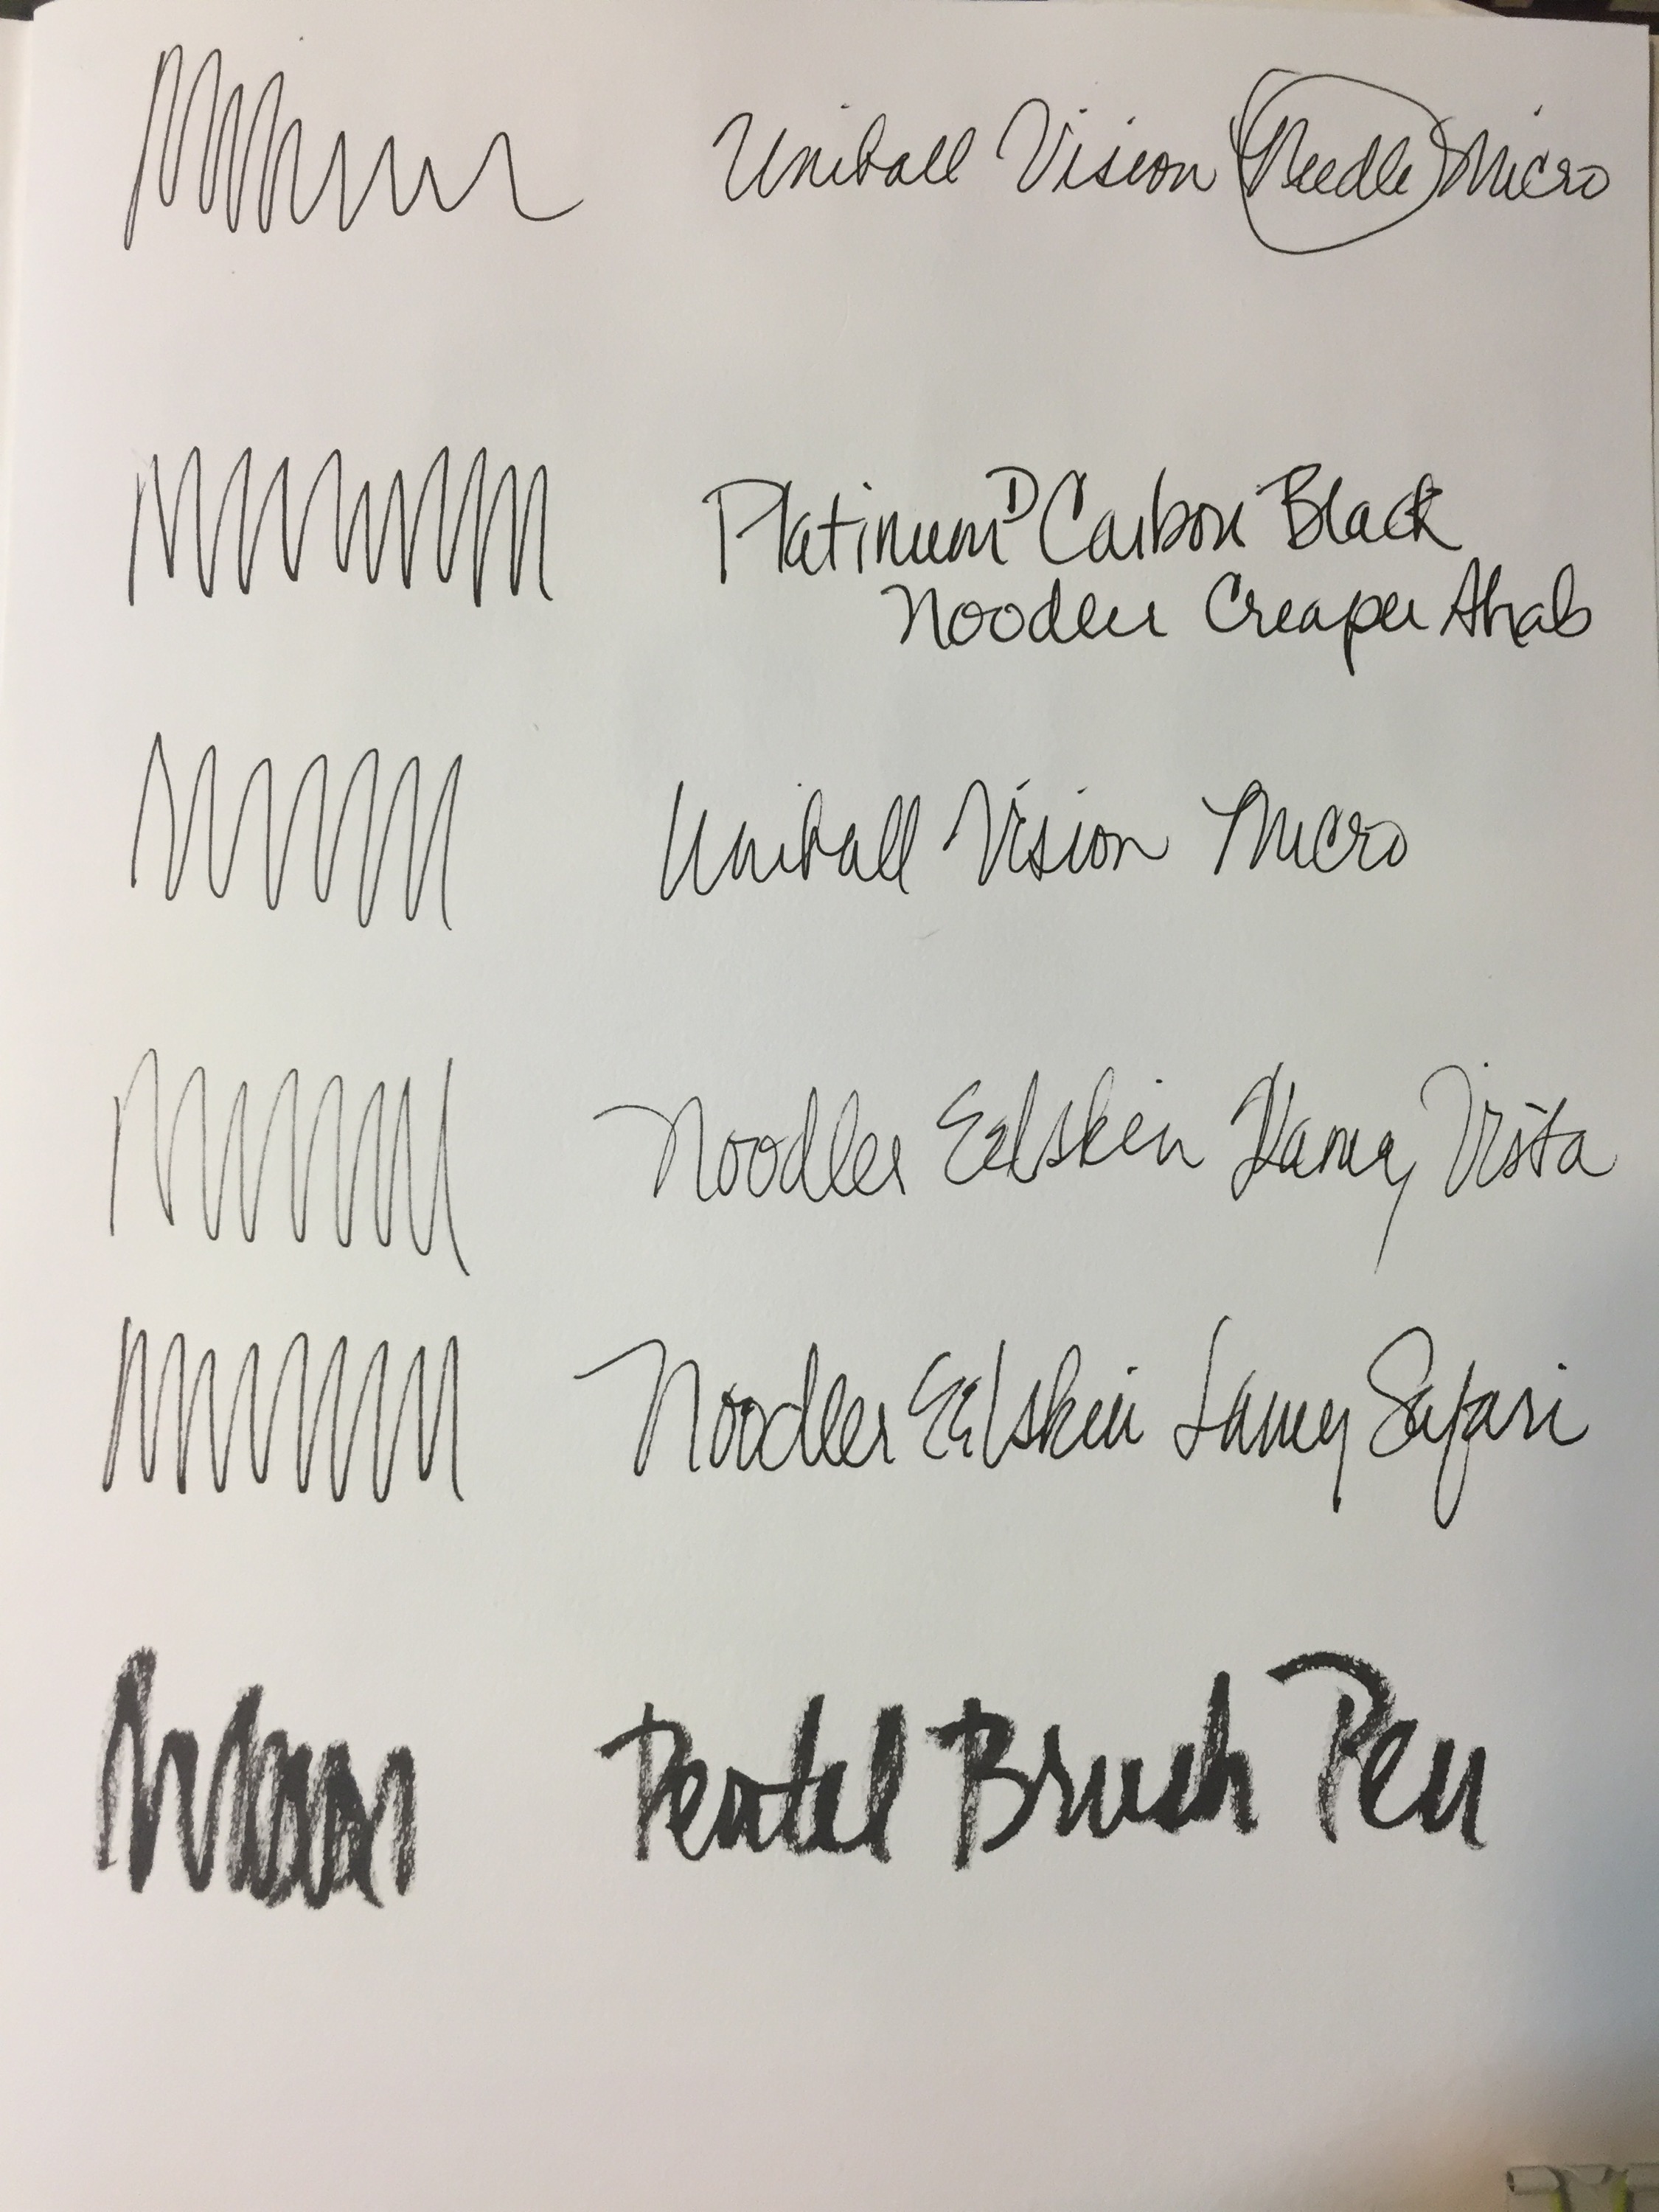 Uniball Vision Needle Micro
Platinum Carbon Black
Noodler Creaper Ahab
Uniball Vision Micro
Noodler Eelskin Lamy Vista
Noodler Eelskin Lamy Safari
Pentel Brush Pen